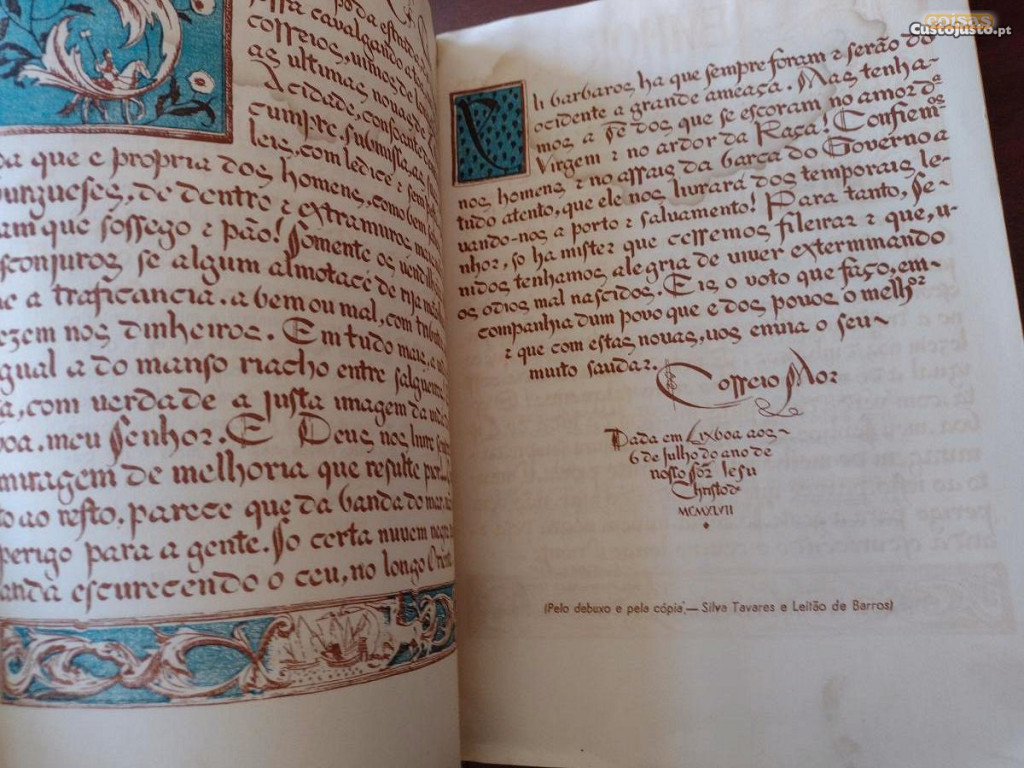 coisas
Custojusto.pt
poda estrada
essa cavalgando ate
cosseios, uimos de
as ultimas novas de
A cidade, consoante
cumpre, submissa, as
leis, com ledice e sem
da que e propria dos homens,
tuguezes, de dentro e extramuros
am que sossego e pão! Somente os
sconjuros se algum almotacé de rija
e a traficancia. a bem ou mal, com
ezem nos dinheiros. Em tudo mais, e
gual a do manso riacho entre salgueiros
a, com verdade a justa imagem da
boa. meu Senhor. E Deus nos livre
miragem de melhoria que resulte
to ao resto, parece que da banda do mar
perigo para a gente. So certa nuvem negra
anda escurecendo o ceu, no longo Oriente
li barbaros, ha que sempre foram e serão do
ocidente a grande ameaça. Mas tenha-
mos a Fé dos que se escoram no amor da
Virgem e no ardor da Raça! Confiemos
nos homens e no assais da barca do Governo a
tudo atento, que ele nos livrará dos temporais le-
vando-nos a porto e salvamento! Para tanto, Se-
nhor, so ha mister que cessemos fileirar e que, u-
nidos tenhamos alegria de viver exterminando
os odios mal nascidos. Eis o voto que faço, em-
companhia dum povo que e dos povos o melhor
e que com estas novas, vos envia o seu-
muito saudar.
Cosseio Mor
Dada em Lixboa aos-
6 de Julho do ano de
nosso Sor Jesu
Christo de
MCMXLVII
(Pelo debuxo e pela cópia,— Silva Tavares e Leitão de Barros)